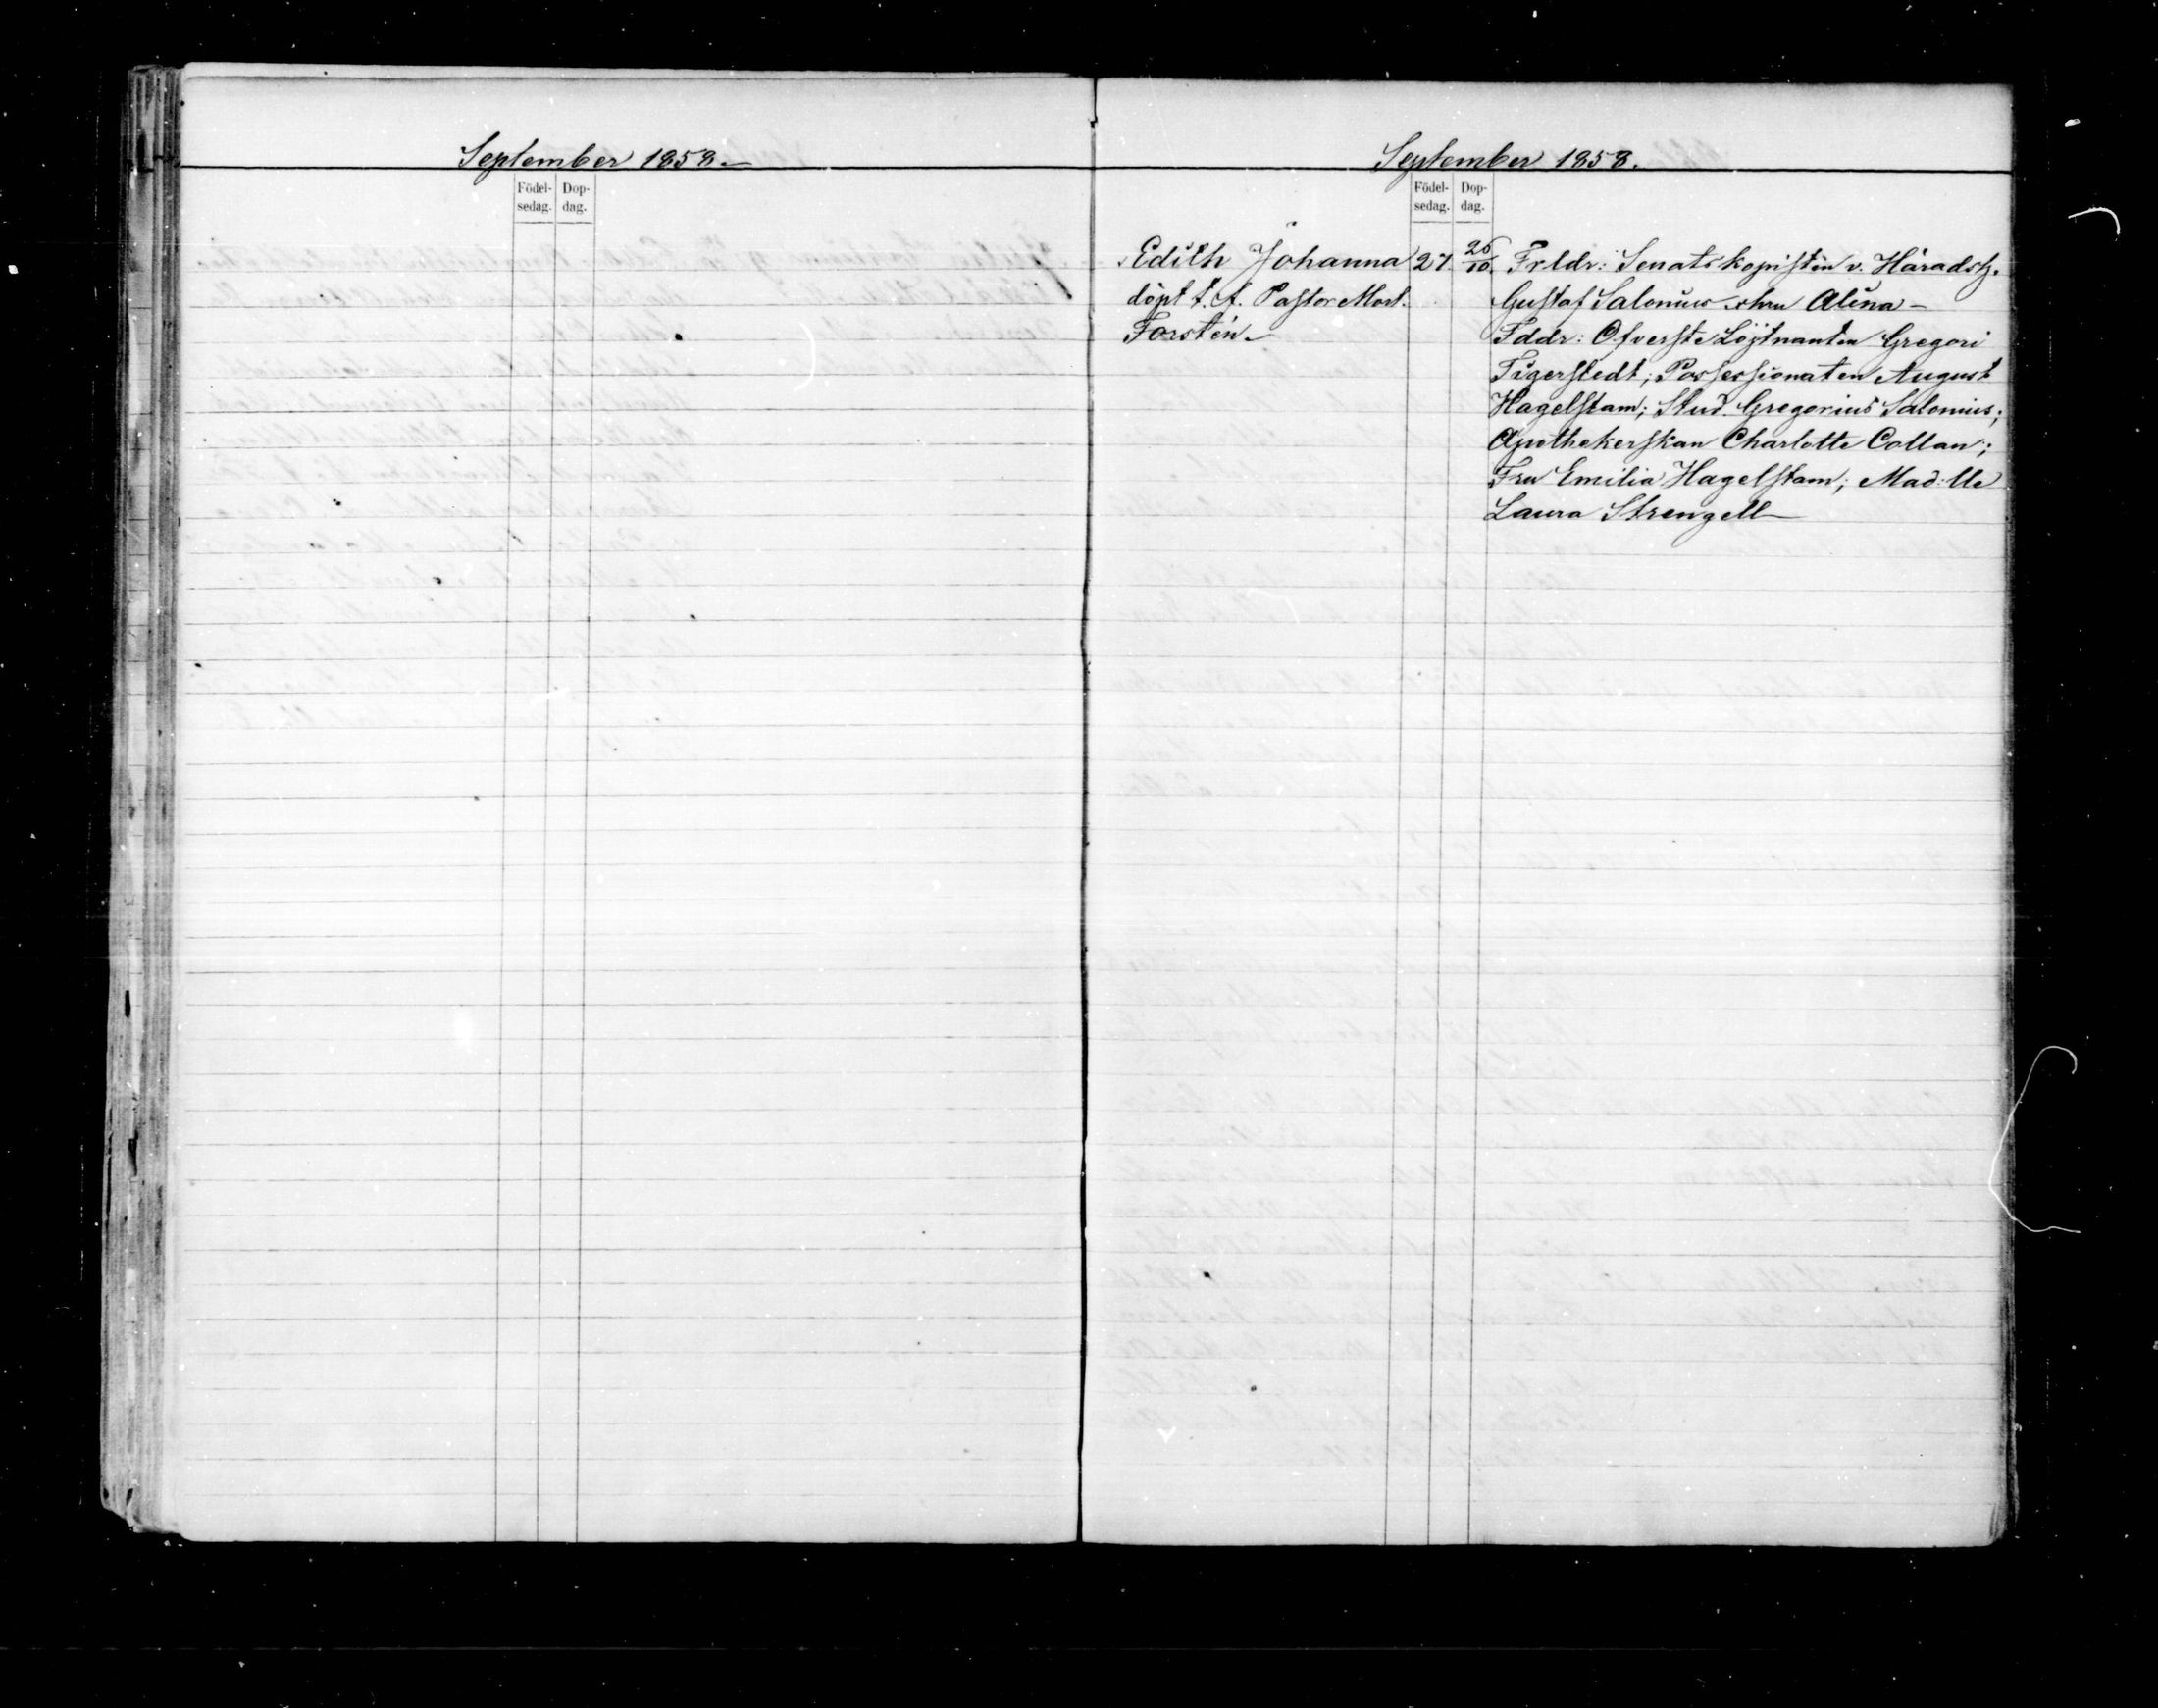 September 1858.
Födel- Dop-
sedag. dag.
September 1858.
Födel- Dop-
sedag. dag.
Edith Johanna 27 26/10 Frldr: Senatskopisten v. Häradsh.
döpt t. f. Pastor Mart. Gustaf Salonius o hu Alina
Forstén Fddr: Öfverste Löjtnanten Gregori
Tigerstedt; Possessionaten August
Hagelstam; Stud. Gregorius Salonius;
Apothekerskan Charlotte Collan;
Fru Emilia Hagelstam; Mad:lle
Laura Strengell